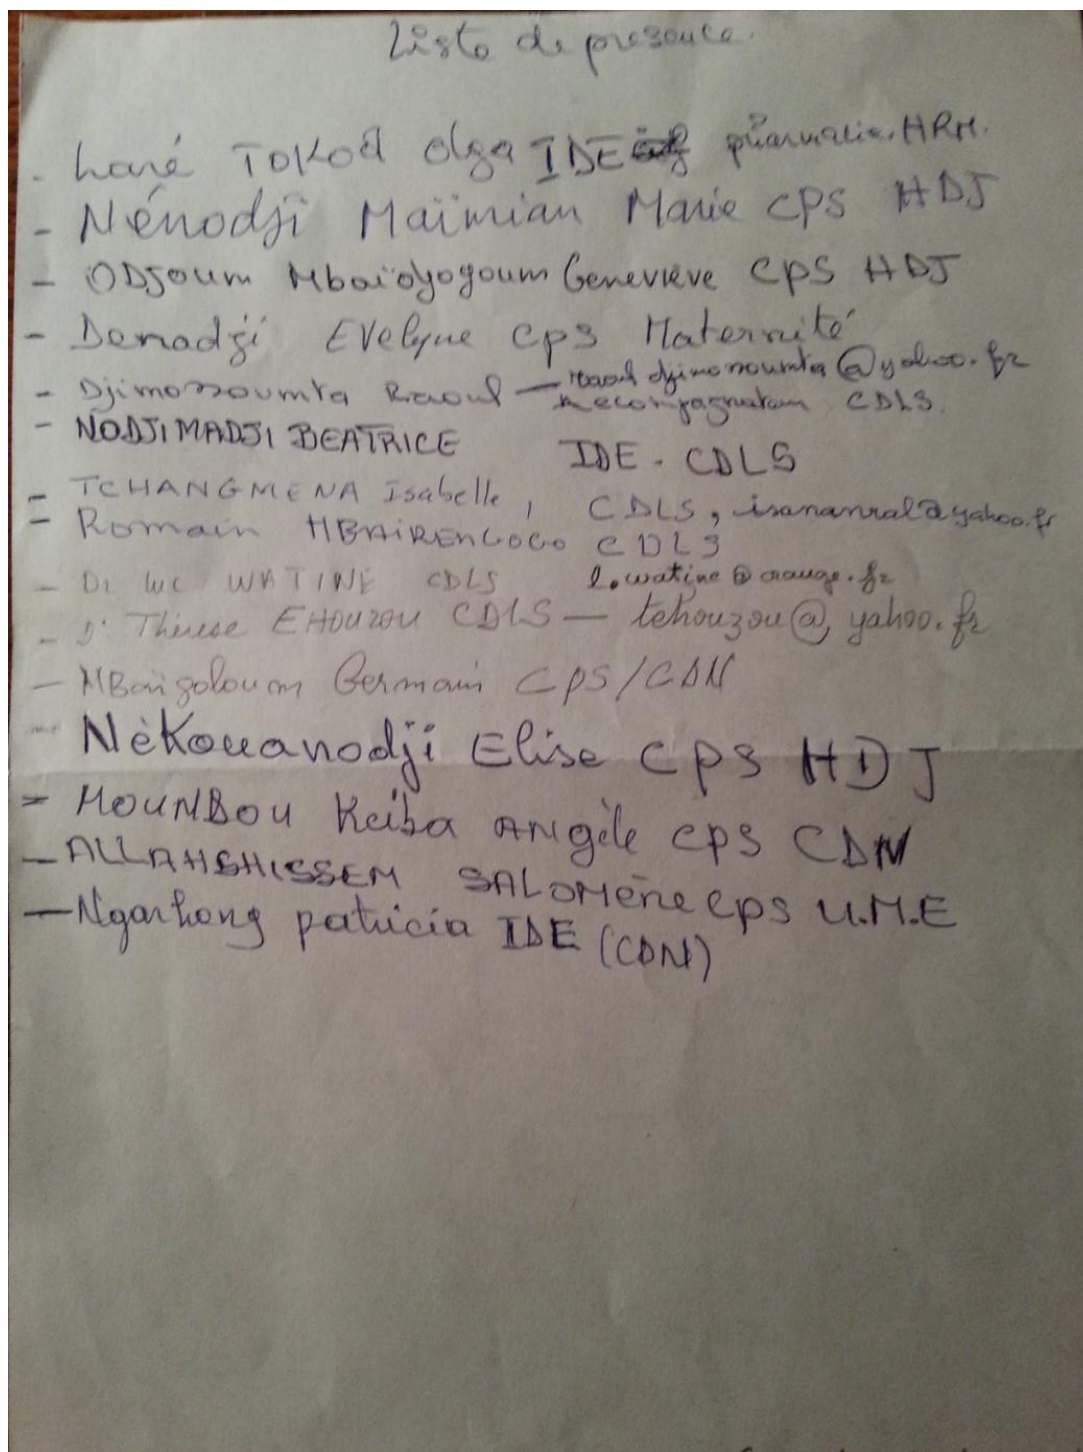 Liste de presence.
- Lané TOKOÎ Olga IDE pharmacie HRM.
- Nénodji Maïmian Marie CPS HDJ
- ODJoum Mbaïdyogoum Geneviève CPS HDJ
- Denadji Evelyne Cps Maternité
- Djimonoumta Raoul — raoul djimonoumta@yahoo.fr
CDLS.
- NODJIMADJI BEATRICE IDE - CDLS
- TCHANGMENA Isabelle, CDLS, isananral@yahoo.fr
- Romain MBAIRENGOGO CDLS
- Dr Luc WATINE CDLS l.watine@orange.fr
- Dr Thérèse EHOUZOU CDLS — tehouzou@yahoo.fr
- MBaïgoloum Germain CPS/CDN
- Nèkouanodji Elise CPS HDJ
- MOUNBOU Keiba ANgèle CPS CDN
- ALLAHSHISSEM SALOMÊne CPS U.M.E
- Ngarhong patricia IDE (CDN)